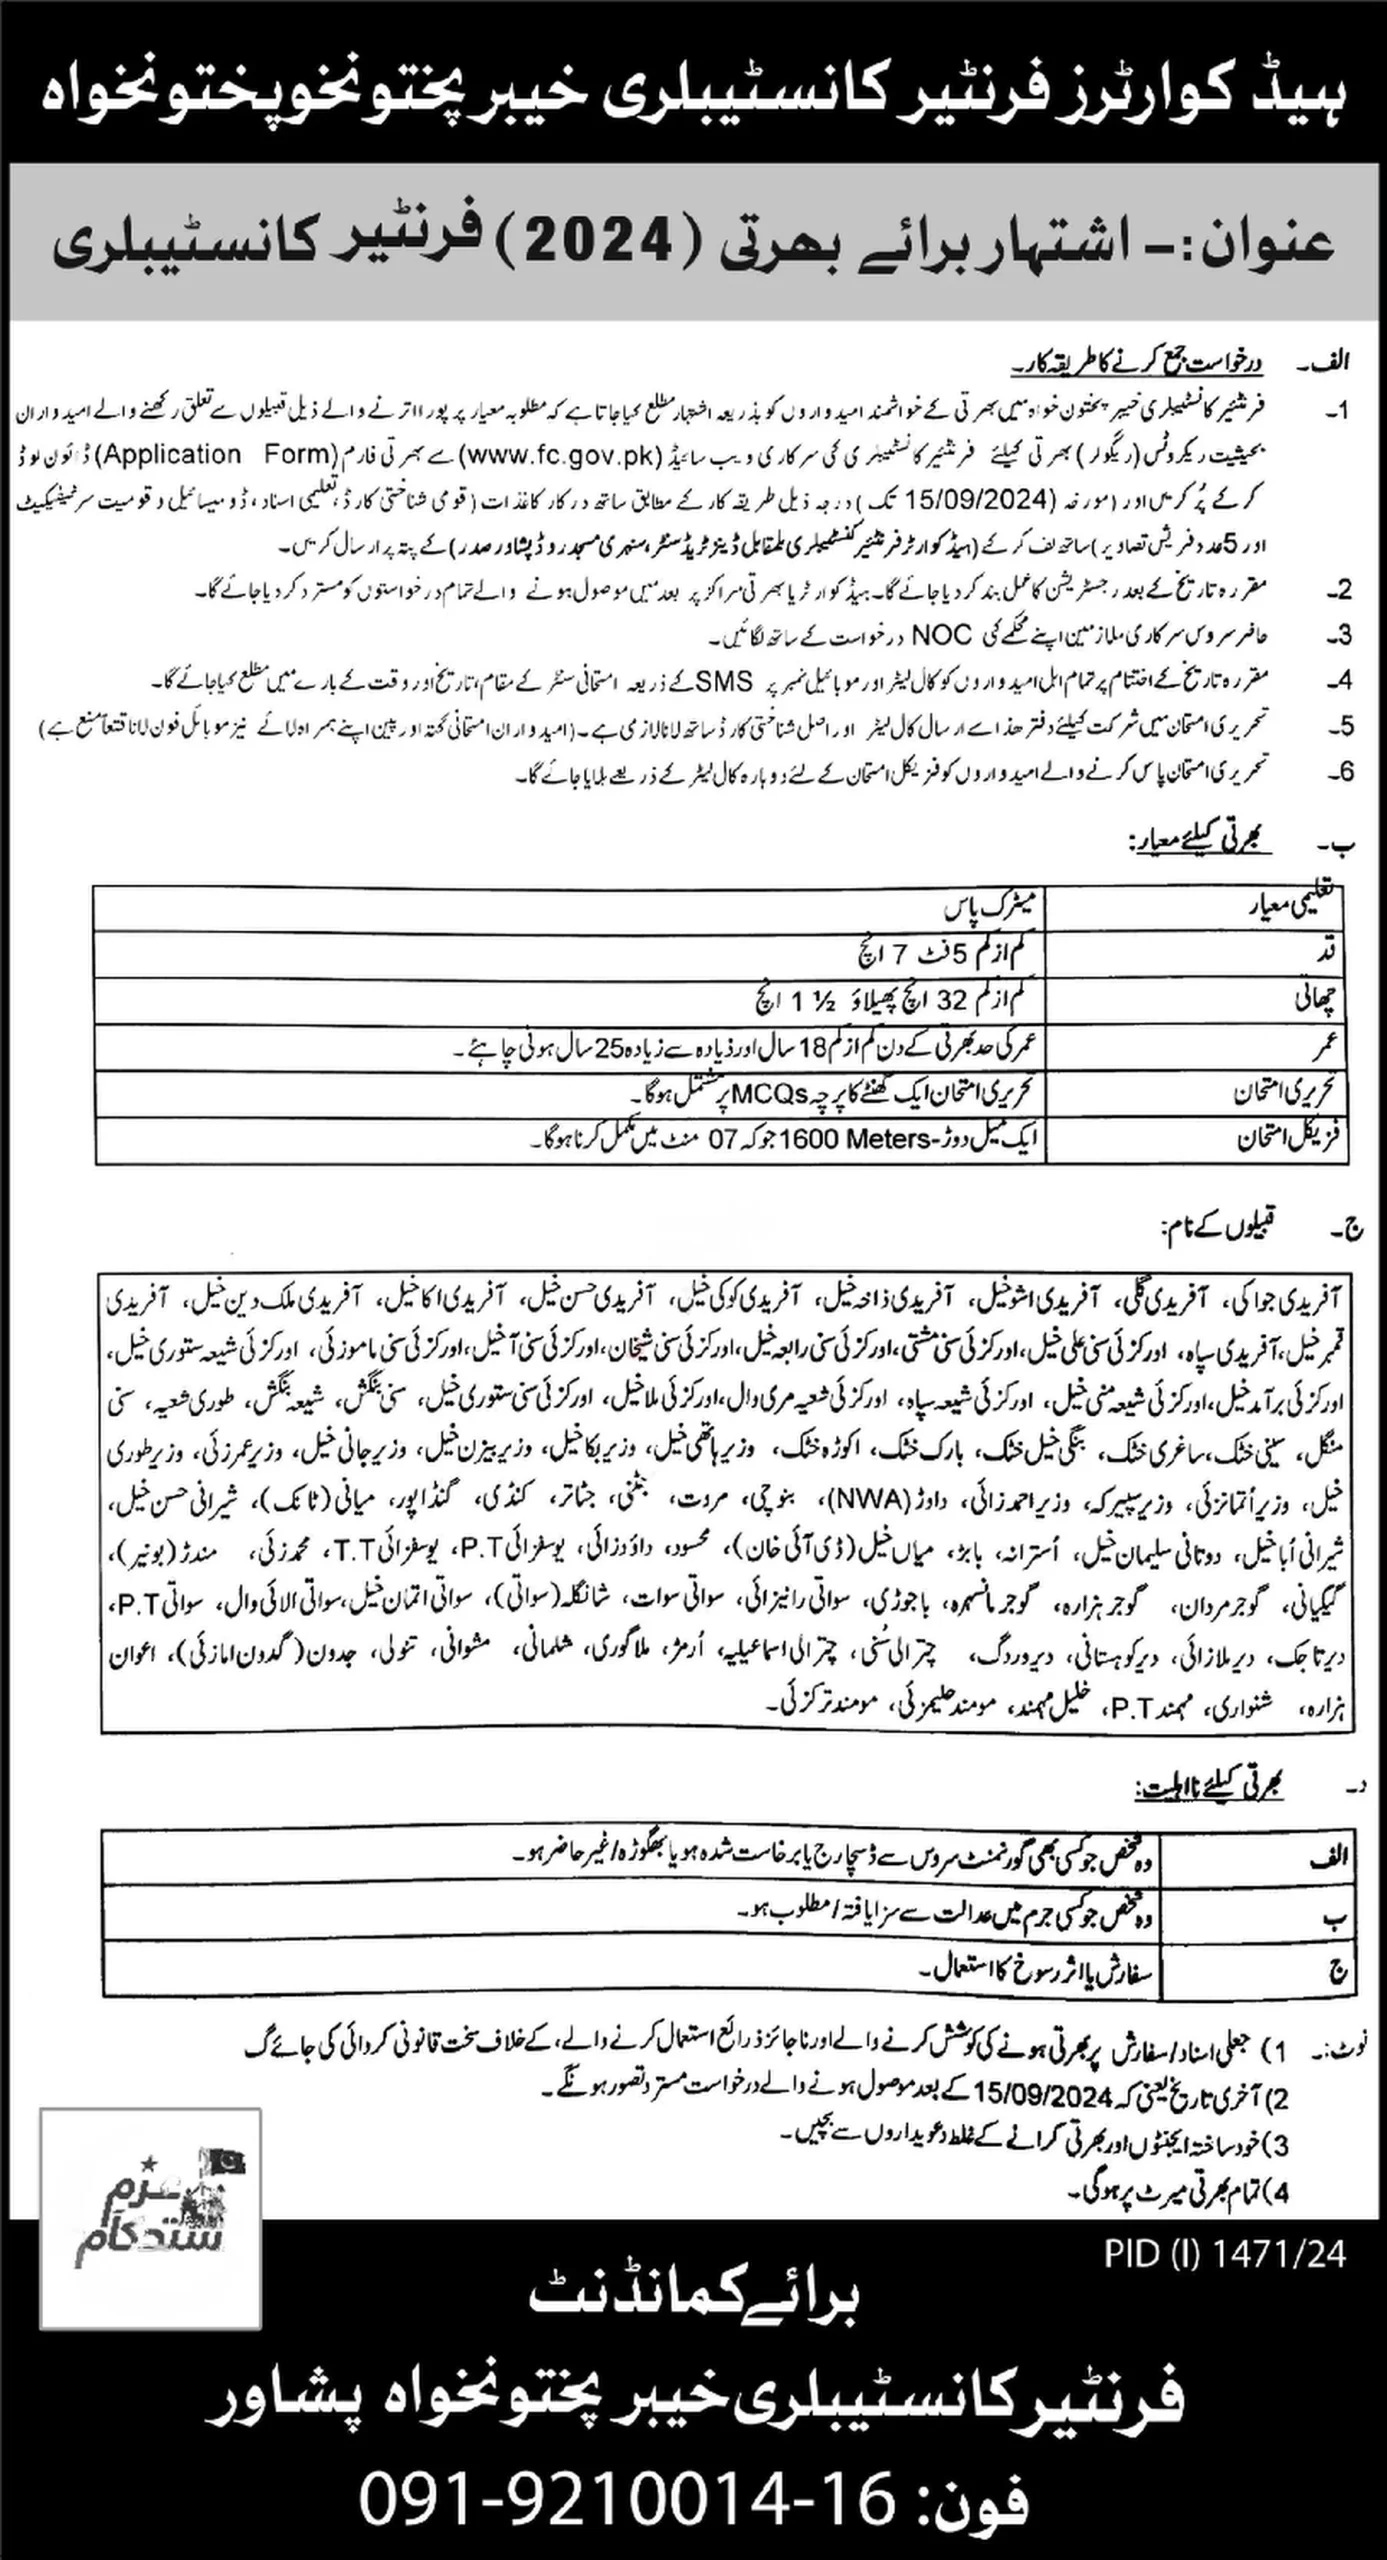 ہیڈ کوارٹرز فرنٹیر کانسٹیبلری خیبر پختونخوپختونخواہ
عنوان:- اشتہار برائے بھرتی (2024) فرنٹیر کانسٹیبلری
الف۔ درخواست جمع کرنے کا طریقہ کار۔
1۔ فرنٹیر کانسٹیبلری خیبر پختون خواہ میں بھرتی کے خواشمند امیدواروں کو بذریعہ اشتہار مطلع کیا جاتا ہے کہ مطلوبہ معیار پر پورا اترنے والے ذیل قبیلوں سے تعلق رکھنے والے امیدواران
بحیثیت ریکروٹس (ریگولر) بھرتی کیلئے فرنٹیر کانسٹیبلری کی سرکاری ویب سائیڈ (www.fc.gov.pk) سے بھرتی فارم (Application Form) ڈائون لوڈ
کرکے پُر کریں اور (مورخہ 15/09/2024 تک) درجہ ذیل طریقہ کار کے مطابق ساتھ درکار کاغذات (قومی شناختی کارڈ، تعلیمی اسناد، ڈومیسائیل و قومیت سرٹیفیکیٹ
اور 5 عدد فریش تصاویر) ساتھ لف کر کے (ہیڈ کوارٹر فرنٹیر کنسٹیبلری بلمقابل ڈینز ٹریڈ سنٹر، سنہری مسجد روڈ پشاور صدر) کے پتہ پر ارسال کریں۔
2۔ مقررہ تاریخ کے بعد رجسٹریشن کا عمل بند کر دیا جائے گا۔ ہیڈ کوارٹر یا بھرتی مراکز پر بعد میں موصول ہونے والے تمام درخواستوں کو مسترد کر دیا جائے گا۔
3۔ حاضر سروس سرکاری ملازمین اپنے محکمے کی NOC درخواست کے ساتھ لگائیں۔
4۔ مقررہ تاریخ کے اختتام پر تمام اہل امیدواروں کو کال لیٹر اور موبائیل نمبر پر SMS کے ذریعہ امتحانی سنٹر کے مقام، تاریخ اور وقت کے بارے میں مطلع کیا جائے گا۔
5۔ تحریری امتحان میں شرکت کیلئے دفتر ھذا سے ارسال کال لیٹر اور اصل شناختی کارڈ ساتھ لانا لازمی ہے۔ (امیدواران امتحانی گتہ اور پین اپنے ہمراہ لائے نیز موبائل فون لانا قتعاً منع ہے)
6۔ تحریری امتحان پاس کرنے والے امیدواروں کو فزیکل امتحان کے لئے دوبارہ کال لیٹر کے ذریعے بلایا جائے گا۔
ب۔ بھرتی کیلئے معیار:
تعلیمی معیار میٹرک پاس
قد کم از کم 5 فٹ 7 انچ
چھاتی کم از کم 32 انچ پھیلاؤ ½ 1 انچ
عمر عمر کی حد بھرتی کے دن کم از کم 18 سال اور زیادہ سے زیادہ 25 سال ہونی چاہئے۔
تحریری امتحان تحریری امتحان ایک گھنٹے کا پرچہ MCQs پر مشتمل ہوگا۔
فزیکل امتحان ایک میل دوڑ-1600 Meters جو کہ 07 منٹ میں مکمل کرنا ہوگا۔
ج۔ قبیلوں کے نام:
آفریدی جواکی، آفریدی گلی، آفریدی اشوخیل، آفریدی ذاخہ خیل، آفریدی کوکی خیل، آفریدی حسن خیل، آفریدی اکاخیل، آفریدی ملک دین خیل، آفریدی
قمبر خیل، آفریدی سپاہ، اورکزئی سنی علی خیل، اورکزئی سنی مشتی، اورکزئی سنی رابعہ خیل، اورکزئی سنی شیخان، اورکزئی سنی آخیل، اورکزئی سنی ماموزئی، اورکزئی شیعہ ستوری خیل،
اورکزئی برآمد خیل، اورکزئی شیعہ منی خیل، اورکزئی شیعہ سپاہ، اورکزئی شعیہ مری وال، اورکزئی ملاخیل، اورکزئی سنی ستوری خیل، سنی بنگش، شیعہ بنگش، طوری شعیہ، سنی
منگل، سینی خٹک، ساغری خٹک، بنگی خیل خٹک، بارک خٹک، اکوڑہ خٹک، وزیر ہاتھی خیل، وزیر بکاخیل، وزیر بیزن خیل، وزیر جانی خیل، وزیر عمرزئی، وزیر طوری
خیل، وزیر اُتمانزئی، وزیر سپیرکہ، وزیر احمد زائی، داوڑ (NWA)، بنوچی، مروت، بٹنی، جٹاتر، کنڈی، گنڈاپور، میانی (ٹانک)، شیرانی حسن خیل،
شیرانی اُباخیل، دوتانی سلیمان خیل، اُسترانہ، بابڑ، میاں خیل (ڈی آئی خان)، محسود، داؤدزائی، یوسفزائی P.T، یوسفزائی T.T، محمدزئی، مندڑ (بونیر)،
گیگیانی، گوجر مردان، گوجر ہزارہ، گوجر مانسہرہ، باجوڑی، سواتی رانیزائی، سواتی سوات، شانگلہ (سواتی)، سواتی اتمان خیل، سواتی الائی وال، سواتی P.T،
دیر تاجک، دیر ملازائی، دیر کوہستانی، دیر وردگ، چترالی سُنی، چترالی اسماعیلیہ، اُرمڑ، ملاگوری، شلمانی، مشوانی، تنولی، جدون (گدون امازئی)، اعوان
ہزارہ، شنواری، مہمند P.T، خلیل مہمند، مومند حلیمزئی، مومند ترکزئی۔
د۔ بھرتی کیلئے نااہلیت:
الف وہ شخص جو کسی بھی گورنمنٹ سروس سے ڈسچارج یا برخاست شدہ ہو یا بھگوڑہ/غیر حاضر ہو۔
ب وہ شخص جو کسی جرم میں عدالت سے سزا یافتہ/مطلوب ہو۔
ج سفارش یا اثر رسوخ کا استعمال۔
نوٹ:۔ 1) جعلی اسناد/سفارش پر بھرتی ہونے کی کوشش کرنے والے اور ناجائز ذرائع استعمال کرنے والے، کے خلاف سخت قانونی کروائی کی جائے گ
2) آخری تاریخ یعنی کہ 15/09/2024 کے بعد موصول ہونے والے درخواست مسترد تصور ہونگے۔
3) خود ساختہ ایجنٹوں اور بھرتی کرانے کے غلط دعویداروں سے بچیں۔
4) تمام بھرتی میرٹ پر ہوگی۔
عزم
PID (I) 1471/24
برائے کمانڈنٹ
فرنٹیر کانسٹیبلری خیبر پختونخواہ پشاور
فون: 091-9210014-16